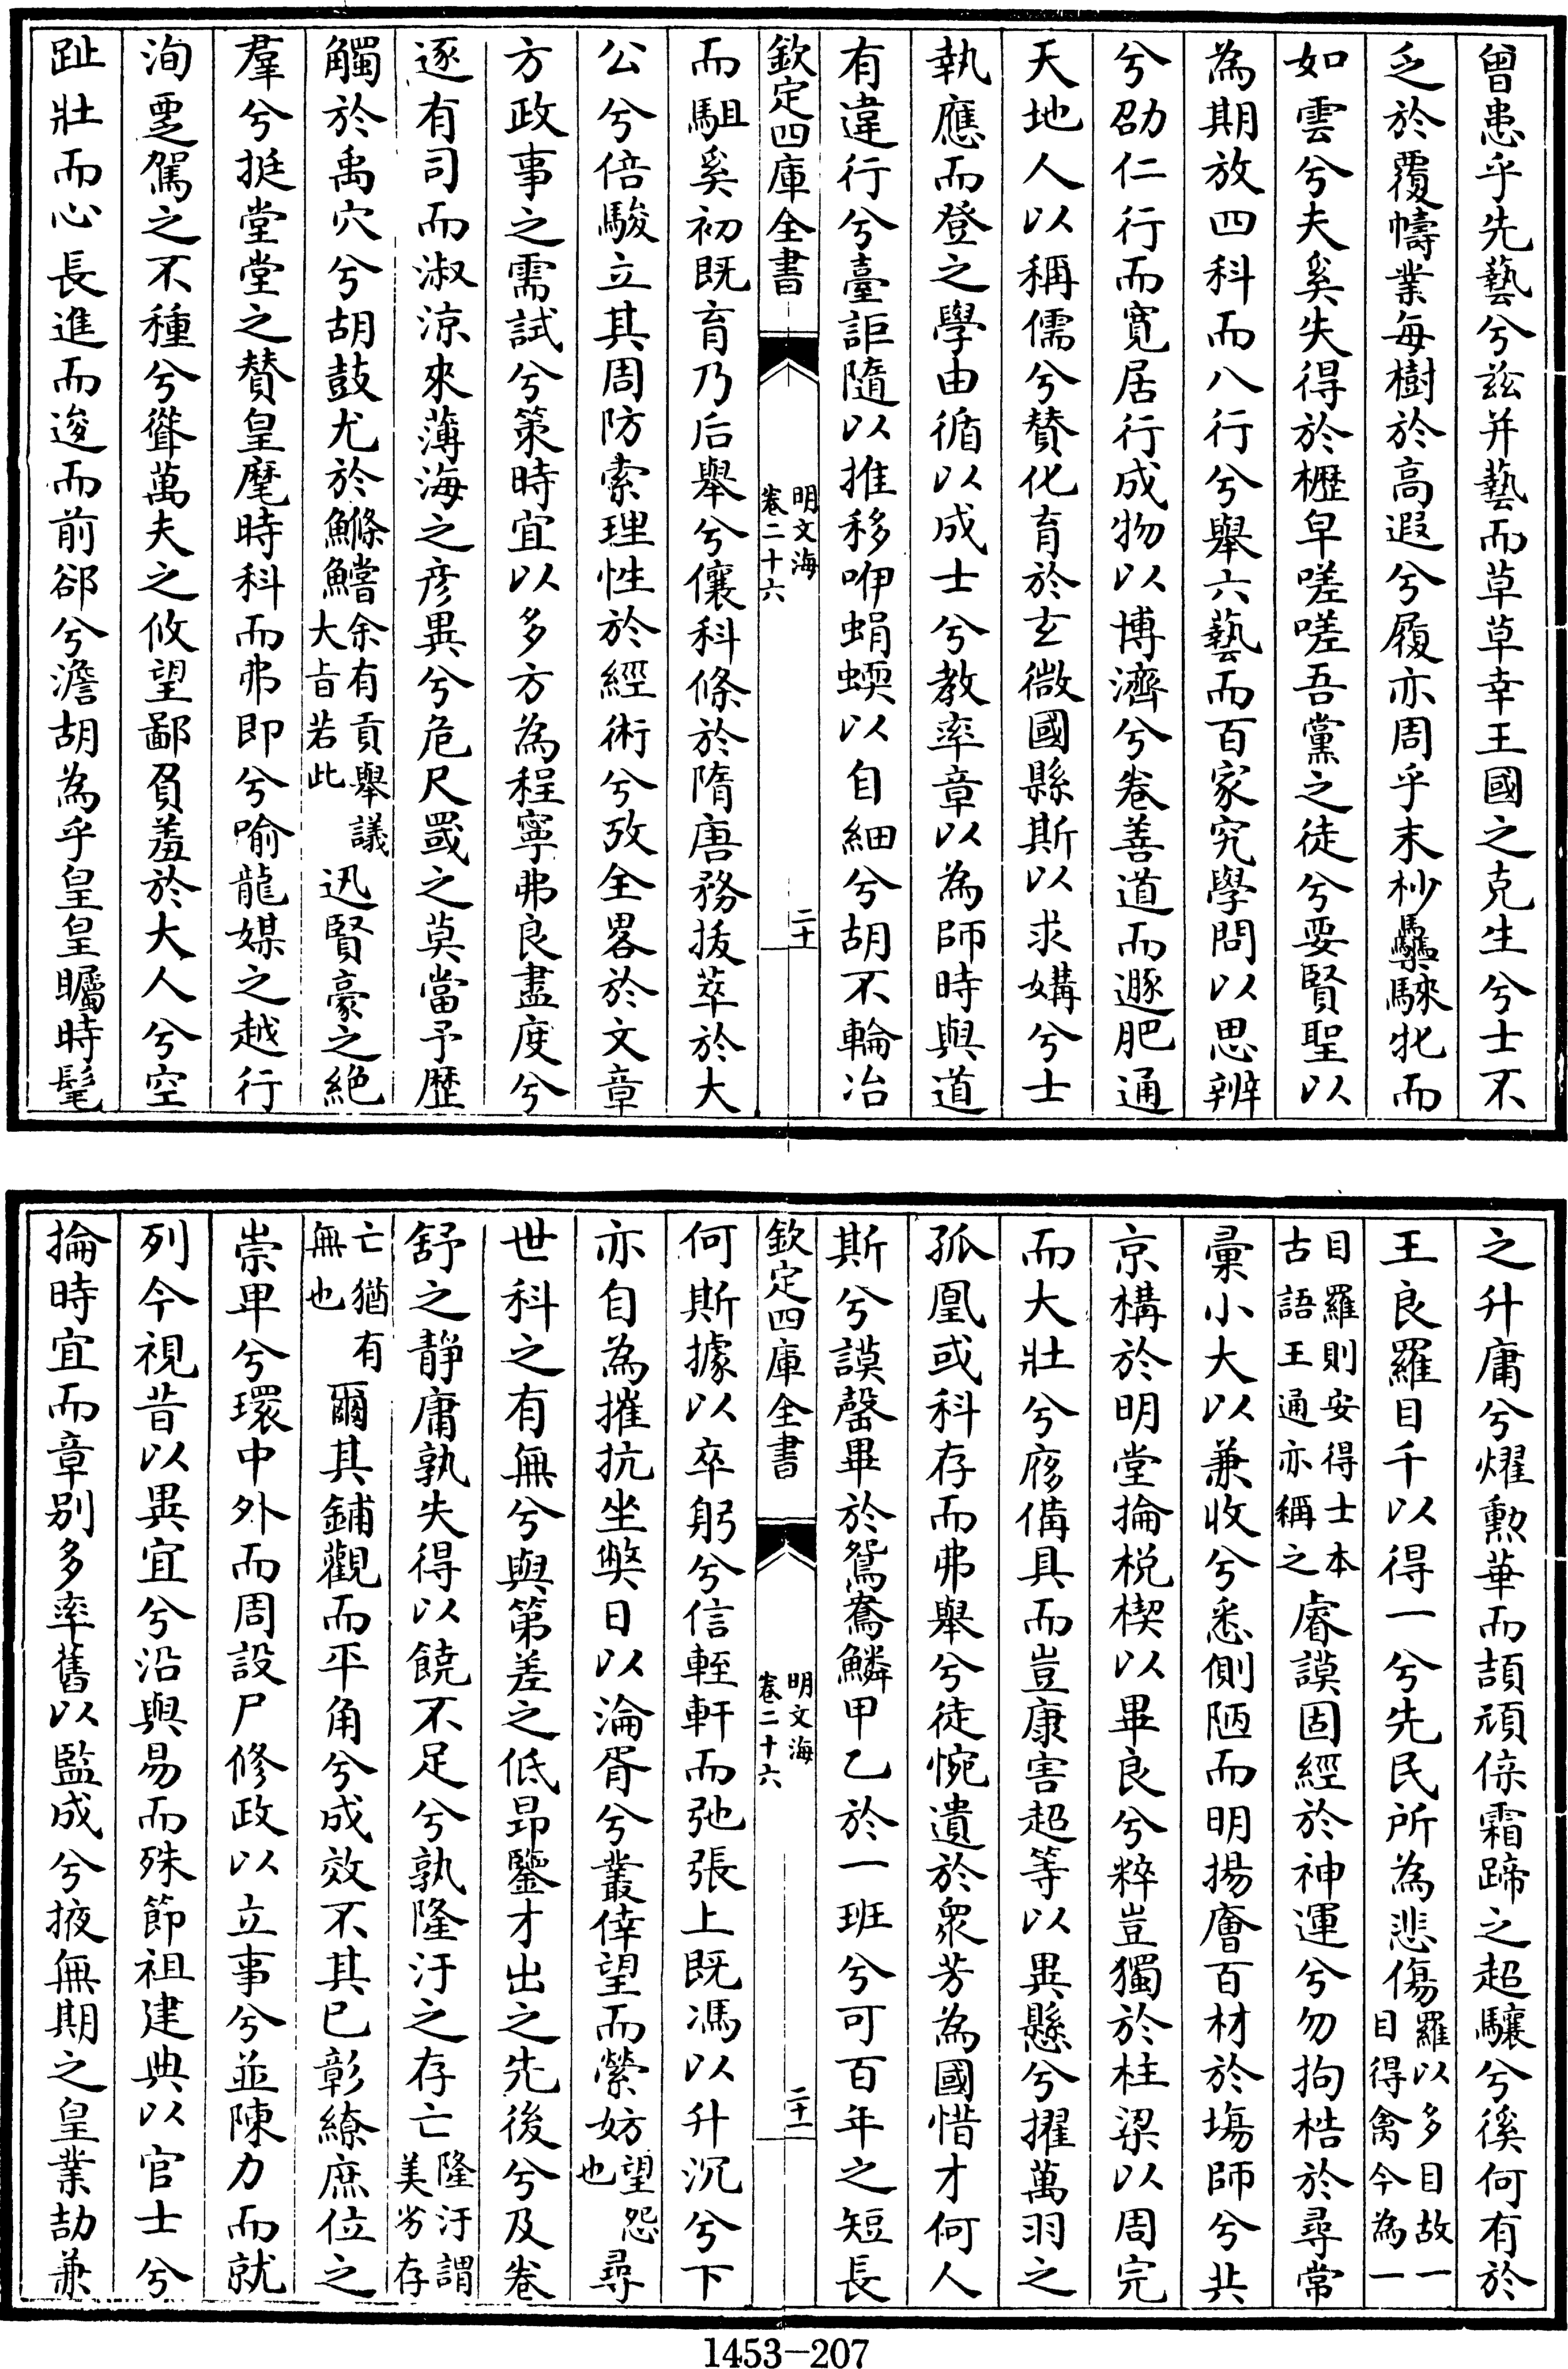 曾患乎先藝兮茲并藝而草草幸王國之克生兮士不
乏於覆幬業每樹於高遐兮履亦周乎末杪驫騋牝而
如雲兮夫奚失得於櫪皁嗟嗟吾黨之徒兮要賢聖以
為期放四科而八行兮舉六藝而百家究學問以思辨
兮劭仁行而寬居行成物以博濟兮卷善道而遯肥通
天地人以稱儒兮贊化育於玄微國縣斯以求媾兮士
執應而登之學由循以成士兮教率章以為師時與道
有違行兮臺詎隨以推移呷蜎蝡以自細兮胡不輪冶
欽定四庫全書
明文海
卷二十六
二十
而駔奚初既育乃后舉兮儴科條於隋唐務拔萃於大
公兮倍駿立其周防索理性於經術兮攷全畧於文章
方政事之需試兮策時宜以多方為程寧弗良盡度兮
逐有司而淑涼來薄海之彦異兮危尺罭之莫當予歴
觸於禹穴兮胡鼓尤於鰷鱨余有貢舉議大旨若此迅賢豪之絶
羣兮挺堂堂之賛皇麾時科而弗即兮喻龍媒之越行
洵覂駕之不種兮聳萬夫之攸望鄙負羞於大人兮空
趾壯而心長進而逡而前郤兮澹胡為乎皇皇矚時髦
之升庸兮燿勲華而頡頏倧霜蹄之超驤兮徯何有於
王良羅目千以得一兮先民所為悲傷羅以多目故一目得禽今為一
目羅則安得士本古語王通亦稱之睿謨固經於神運兮勿拘梏於尋常
彙小大以兼收兮悉側陋而明揚㑹百材於塲師兮共
京構於明堂掄梲楔以畢良兮粹豈獨於柱梁以周完
而大壯兮庪偹具而豈康害超等以異懸兮擢萬羽之
孤凰或科存而弗舉兮徒惋遺於衆芳為國惜才何人
斯兮謨罄畢於鴛鸞鱗甲乙於一班兮可百年之短長
欽定四庫全書
明文海
卷二十六
二十一
何斯據以卒躬兮信輊軒而弛張上既馮以升沉兮下
亦自為摧抗坐獘日以淪胥兮叢倖望而縈妨望怨也尋
世科之有無兮與第差之低昻鑒才出之先後兮及卷
舒之靜庸孰失得以饒不足兮孰隆汙之存亡隆汙謂美劣存
亡猶有無也爾其鋪觀而平角兮成效不其已彰繚庶位之
崇卑兮環中外而周設尸修政以立事兮並陳力而就
列今視昔以異宜兮沿與易而殊節祖建典以官士兮
掄時宜而章别多率舊以監成兮掖無期之皇業劼兼
1453-207